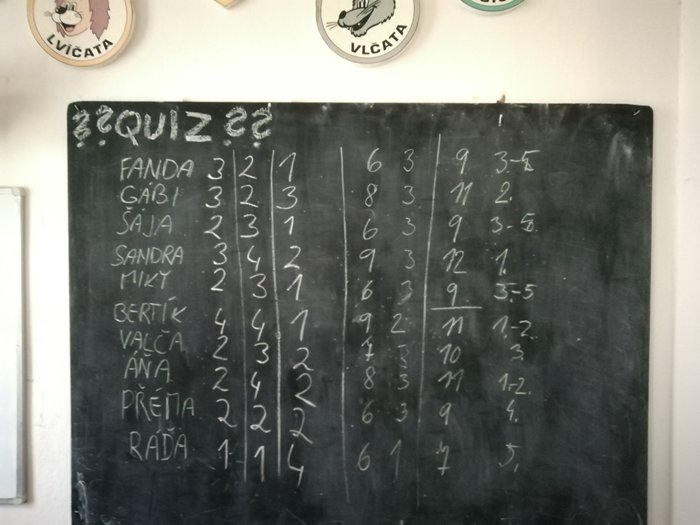 LVÍČATA
VLČATA
??QUIZ??
FANDA 3 2 1 6 3 9 3.-5.
GÁBI 3 2 3 8 3 11 2.
ŠÁJA 2 3 1 6 3 9 3.-5.
SANDRA 3 4 2 9 3 12 1.
MIKY 2 3 1 6 3 9 3.-5
BERTÍK 4 4 1 9 2 11 1.-2.
VALČA 2 3 2 7 3 10 3.
ÁŇA 2 4 2 8 3 11 1.-2.
PŘÉMA 2 2 2 6 3 9 4.
RAĎA 1 1 4 6 1 7 5.